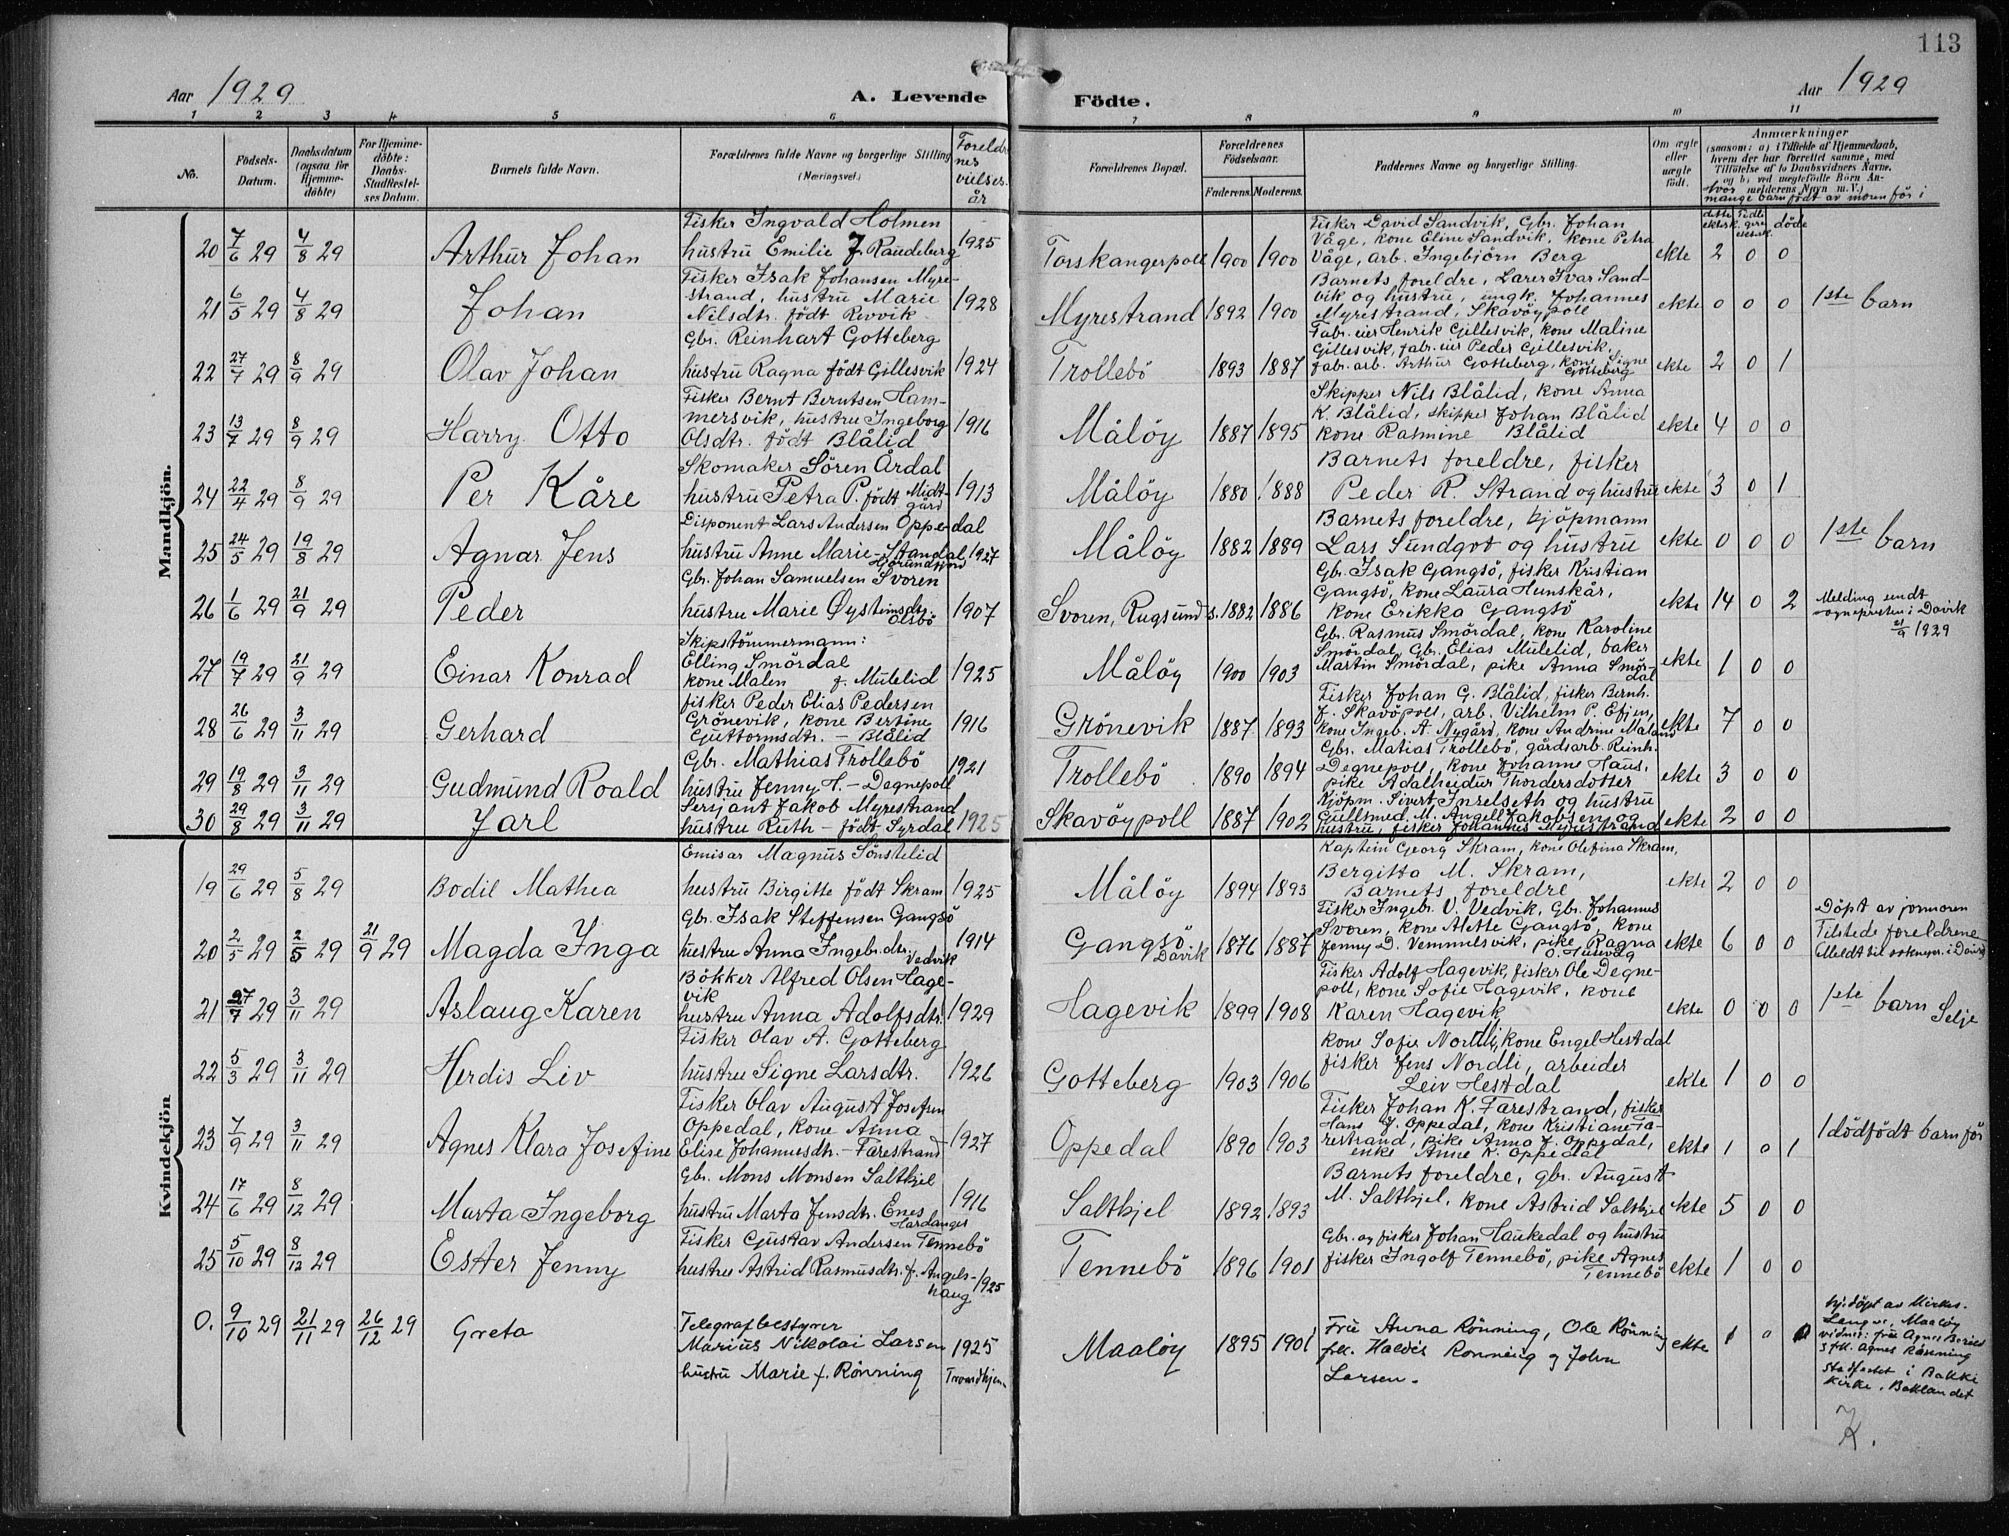 113
Aar 1929
A. Levende
Födte.
Aar 1929
1 2 3 4 5 6 7 8 9 10 11
No.
Födsels-
Datum.
Daabsdatum
(ogsaa for
Hjemme-
döbte)
For Hjemme-
döbte:
Daabs-
Stadfæstel-
ses Datum.
Barnets fulde Navn.
Forældrenes fulde Navne og borgerlige Stilling
(Næringsvei.)
Foreldre
nes
vielses.
år
Forældrenes Bopæl.
Forældrenes
Födselsaar.
Faderens. Moderens.
Faddernes Navne og borgerlige Stilling.
Om ægte
eller
uægte
født.
Anmærkninger
(saasom: a) i Tilfælde af Hjemmedaab,
hvem der har forrettet samme, med
Tilföielse af to Daabsvidners Navne,
og b) ved uægtefödte Börn An-
melderens Navn m. V.)
Hvor
mange barn født av moren før i
dette
ektesk.
Tidli
gere
ektesk.
døde
Mandkjön.
20 7/6 29 4/8 29 Arthur Johan
Fisker Ingvald Holmen
hustru Emilie J. Raudeberg 1925
Torskangerpoll 1900 1900
Fisker David Sandvik, Gbr. Johan
Våge, kone Eline Sandvik, kone Petra
Våge, arb. Ingebjörn Berg
ekte 2 0 0
21 6/5 29 4/8 29 Johan
Fisker Isak Johansen Myre-
strand, hustru Marie
Nilsdtr. född Revvik 1928
Myrestrand 1892 1900
Barnets foreldre, Lærer Ivar Sand-
vik og hustru, ungk. Johannes
Myrestrand, Skavöypoll
ekte 0 0 0 1ste barn
22 27/7 29 8/9 29 Olav Johan
Gbr. Reinhart Gotteberg
hustru Ragna född Gillesvik 1924
Trollebö 1893 1887
Fabr. eier Henrik Gillesvik, kone Maline
Gillesvik, fabr. eier Peder Gillesvik,
fabr. arb. Arthur Gotteberg, kone Signe
Gotteberg
ekte 2 0 1
23 13/7 29 8/9 29 Harry Otto
Fisker Bernt Berntsen Ham-
mersvik, hustru Ingeborg
Olsdtr. född Blålid 1916
Målöy 1887 1895
Skipper Nils Blålid, kone Anna
K. Blålid, skipper Johan Blålid
kone Rasmine Blålid
ekte 4 0 0
24 22/4 29 8/9 29 Per Kåre
Skomaker Sören Årdal
hustru Petra P. född Midt-
gård 1913
Målöy 1880 1888
Barnets foreldre, fisker
Peder R. Strand og hustru
ekte 3 0 1
25 24/5 29 19/8 29 Agnar Jens
Disponent Lars Andersen Oppedal
hustru Anne Marie - Standal
Hjörundfjord 1927
Målöy 1882 1889
Barnets foreldre, kjöpmann
Lars Sundgot og hustru
ekte 0 0 0 1ste barn
26 1/6 29 21/9 29 Peder
Gbr. Johan Samuelsen Svoren
hustru Marie Øystensdtr.
Olsbö 1907
Svoren, Rugsund s. 1882 1886
Gbr. Isak Gangsö, fisker Kristian
Gangsö, kone Laura Hunskår,
kone Erikka Gangsö
ekte 14 0 2
Melding sendt
sognepresten i Davik
21/9 1929
27 19/7 29 21/9 29 Einar Konrad
Skipstömmermann:
Elling Smördal
kone Malen f. Mulelid 1925
Målöy 1900 1903
Gbr. Rasmus Smördal, kone Karoline
Smördal, Gbr. Elias Mulelid, baker
Martin Smördal, pike Anna Smör-
dal
ekte 1 0 0
28 26/6 29 3/11 29 Gerhard
fisker Peder Elias Pedersen
Grönevik, kone Bertine
Guttormsdtr. - Blålid 1916
Grönevik 1887 1893
Fisker Johan G. Blålid, fisker Bernh.
J. Skavöpoll, arb. Vilhelm P. Efjen,
kone Ingeb. A. Nygård, kone Andrine Måland
ekte 7 0 0
29 19/8 29 3/11 29 Gudmund Roald
Gbr. Mathias Trollebö
hustru Jenny H. - Degnepoll 1921
Trollebö 1890 1894
Gbr. Matias Trollebö, gårdsarb. Reinh.
Degnepoll, kone Johanne Haus,
pike Adalheidur Thordersdotter
ekte 3 0 0
30 29/8 29 3/11 29 Jarl
Sersjant Jakob Myrestrand
hustru Ruth - född Syrdal 1925
Skavöypoll 1887 1902
Kjöpm. Sivert Inselseth og hustru
Gullsmed. M. Angell Jakobsen og
hustru, fisker Johannes Myrestrand
ekte 2 0 0
Kvindekjön
19 29/6 29 5/8 29 Bodil Mathea
Emisar Magnus Sönstelid
hustru Birgitte född Skram 1925
Målöy 1894 1893
Kaptein Georg Skram, kone Olefina Skram,
Bergitta M. Skram,
Barnets foreldre
ekte 2 0 0
20 2/5 29 2/5 29 21/9 29 Magda Inga
Gbr. Isak Steffensen Gangsö
hustru Anna Ingebr.dtr.
Vedvik 1914
Gangsö.
Davik 1876 1887
Fisker Ingebr. V. Vedvik, Gbr. Johannes
Svoren, kone Alette Gangsö, kone
Jenny D. Vemmelsvik, pike Ragna
O. Husevåg
ekte 6 0 0
Döpt av jormoren
Tilstede foreldrene
Meldt til soknepr. i Davik
21 27/7 29 3/11 29 Aslaug Karen
Bökker Alfred Olsen Hage-
vik
hustru Anna Adolfsdtr. 1929
Hagevik 1899 1908
Fisker Adolf Hagevik, fisker Ole Degne-
poll, kone Sofie Hagevik, kone
Karen Hagevik,
ekte 0 0 0 1ste barn
Selje
22 5/3 29 3/11 29 Herdis Liv
Fisker Olav A. Gotteberg
hustru Signe Larsdtr. 1926
Gotteberg 1903 1906
kone Sofie Nordli, kone Engel Hestdal
fisker Jens Nordli, arbeider
Leiv Hestdal
ekte 1 0 0
23 7/9 29 3/11 29 Agnes Klara Josefine
Fisker Olav August Josefsen
Oppedal, kone Anna
Elise Johannesdtr. - Färestrand 1927
Oppedal 1890 1903
Fisker Johan K. Färestrand, fisker
Hans J. Oppedal, kone Kristiane Fä-
restrand, pike Anna J. Oppedal,
enke Anne K. Oppedal
ekte 1 0 1 1 dödfödt barn för
24 17/6 29 8/12 29 Marta Ingeborg
Gbr. Mons Monsen Saltkjel
hustru Marta Jensdtr. Enes
Hardanger 1916
Saltkjel 1892 1893
Barnets foreldre, gbr. August
M. Saltkjel, kone Astrid Saltkjel
ekte 5 0 0
25 5/10 29 8/12 29 Ester Jenny
Fisker Gustav Andersen Tennebö
hustru Astrid Rasmusdtr. f. Angels-
haug 1925
Tennebö 1896 1901
Gbr. og fisker Johan Haukedal og hustru
fisker Ingolf Tennebö, pike Agnes
Tennebö
ekte 1 0 0
0. 9/10 29 21/11 29 26/12 29 Greta
Telegrafbestyrer
Marius Nikolai Larsen 1925
hustru Marie f. Rönning Trondhjem
Maalöy 1895 1901
Frü Anna Rönning, Ole Rönning
frk. Haldis Rönning og John
Larsen.
ekte 1 0 0
hj. döpt av
Maalöy
vidner: frü Agnes
& frk. Agnes Rönning
stadfestet i Bakke
kirke, Baklandet
K.